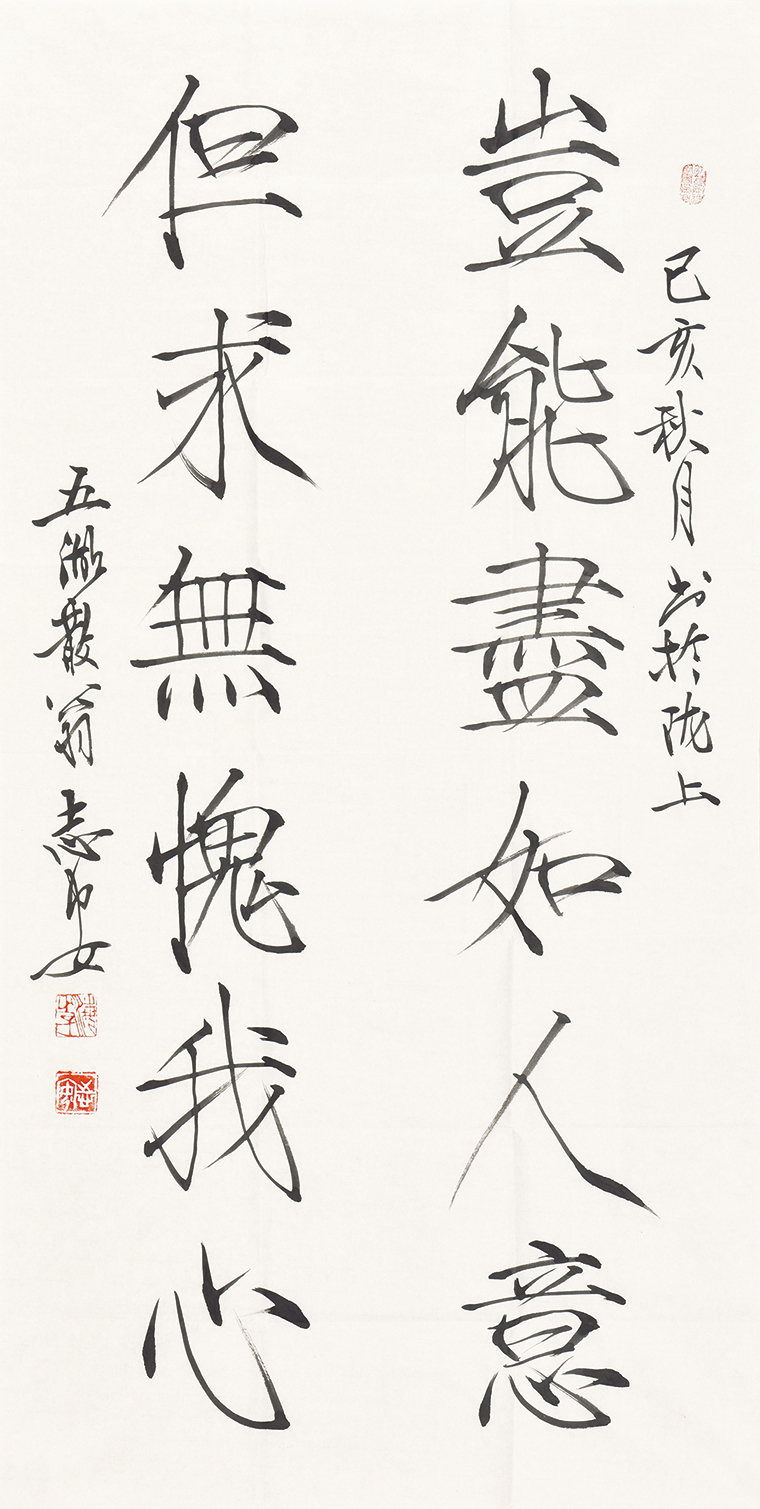 己亥秋月书於陇上
豈能盡如人意
但求無愧我心
五湖散翁志安